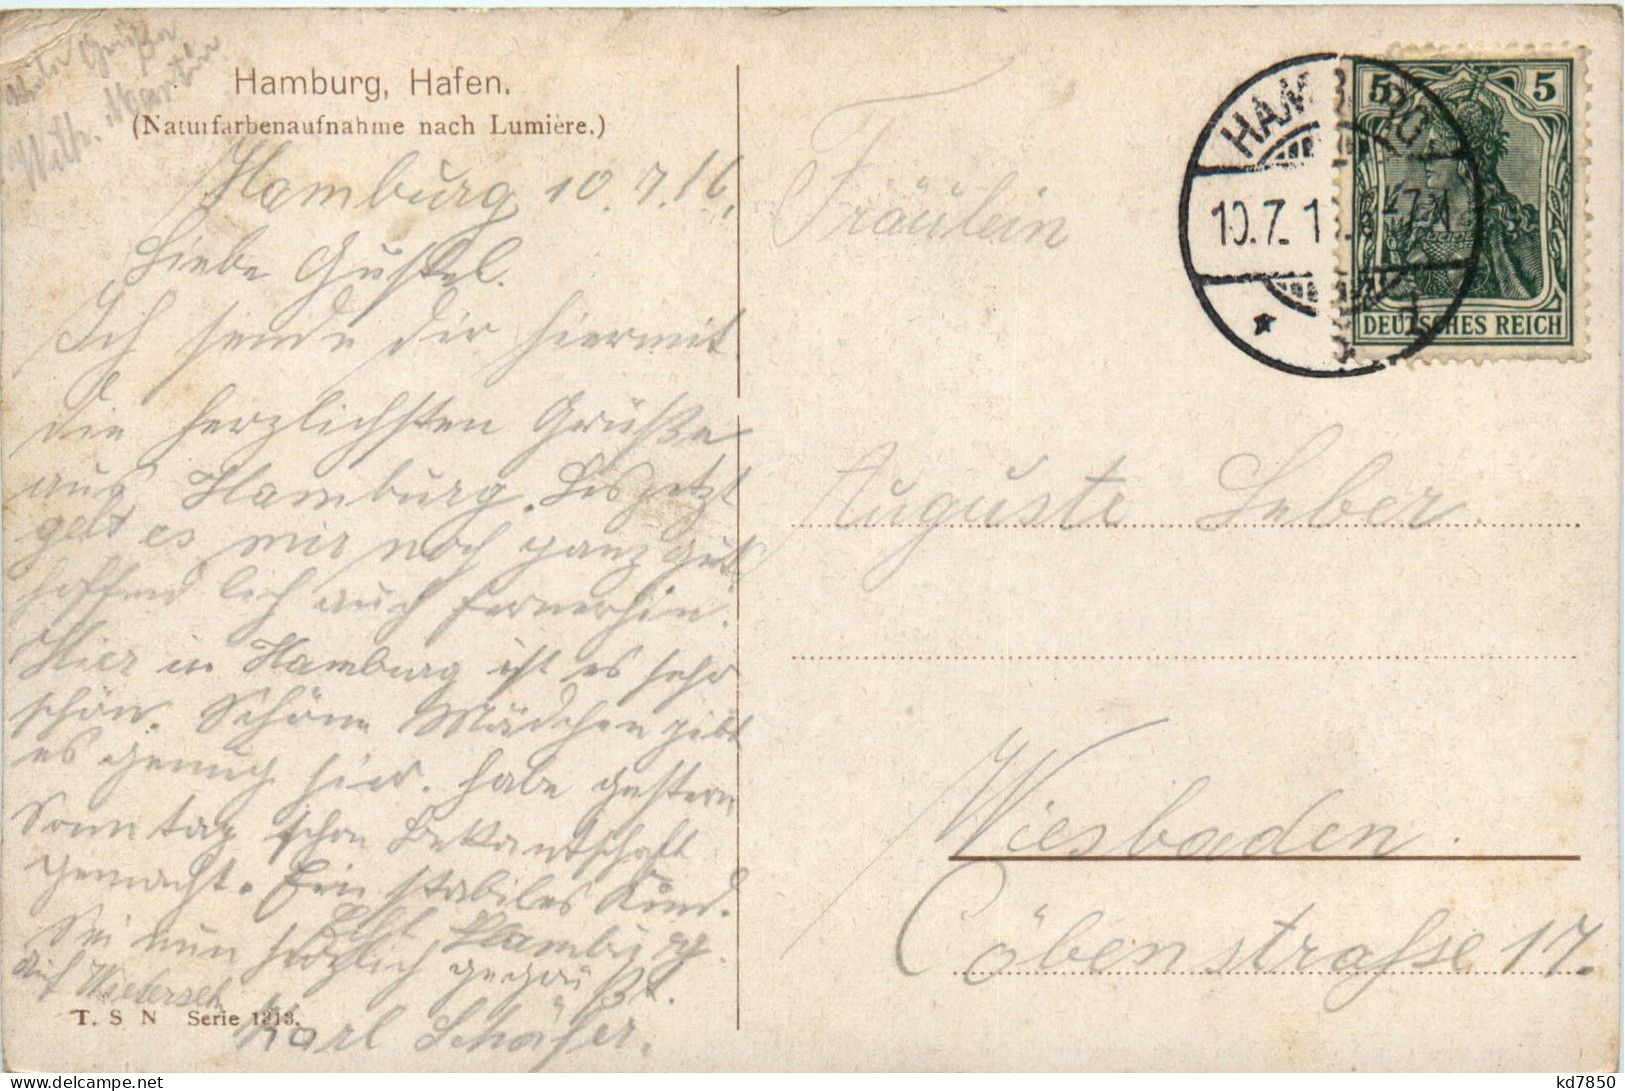 Grüße
Wilh. Martin
Hamburg, Hafen.
(Naturfarbenaufnahme nach Lumière.)
Hamburg 10.7.16.
Liebe Gustel.
Ich sende dir hiermit
die herzlichsten Grüße
aus Hamburg. Bis jetzt
geht es mir noch ganz gut
hoffendlich auch fernerhin.
Hier in Hamburg ist es sehr
schön. Schöne Mädchen gibt
es genug hier. habe gestern
Sonntag schon Bekantschaft
gemacht. Ein stabiles Kind.
Echt Hamburg.
Sei nun herzlich gegrüßt.
auf Wiederseh
Karl Schäfer.
T. S N Serie 1313.
HAMBURG
10.7.1 7-8N
1
5 5
DEUTSCHES REICH
Fräulein
Auguste Leber.
Wiesbaden.
Göbenstrasse 17.
kd7850